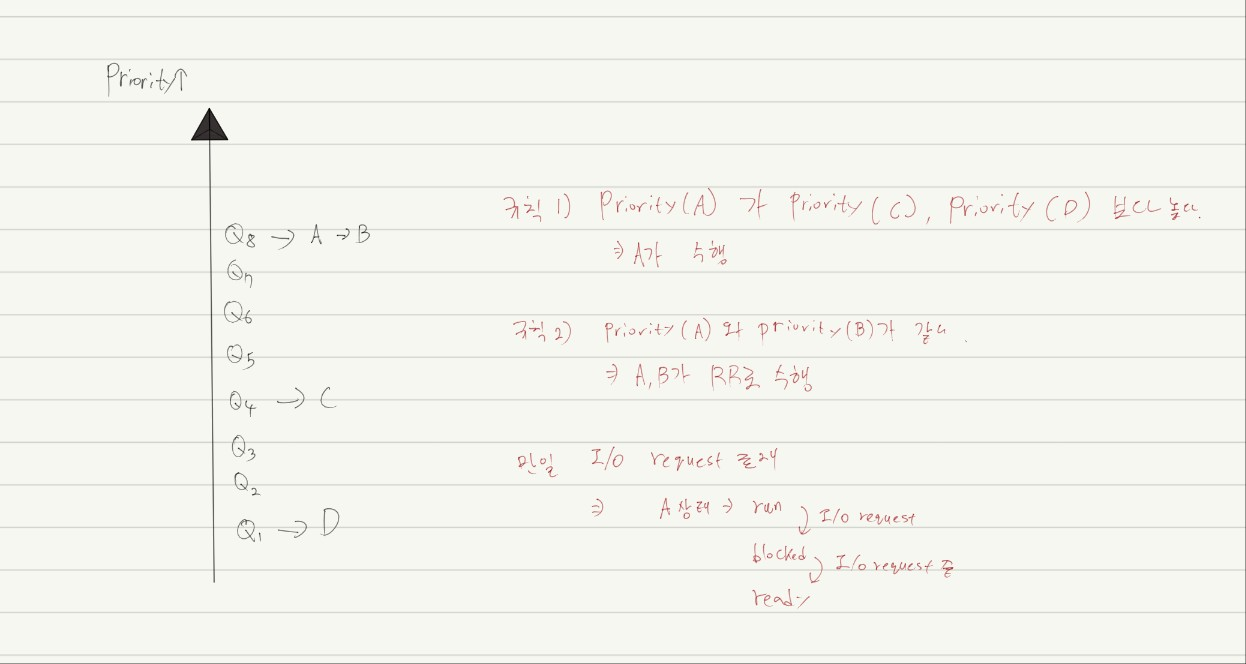 Priority↑
Q8 → A → B
Q7
Q6
Q5
Q4 → C
Q3
Q2
Q1 → D
규칙 1) Priority(A) 가 Priority(C), Priority(D) 보다 높다.
⇒ A가 수행
규칙 2) Priority(A) 와 priority(B)가 같다.
⇒ A,B가 RR로 수행
만일 I/O request 존재
⇒ A상태 → run
I/O request
blocked
I/O request
ready